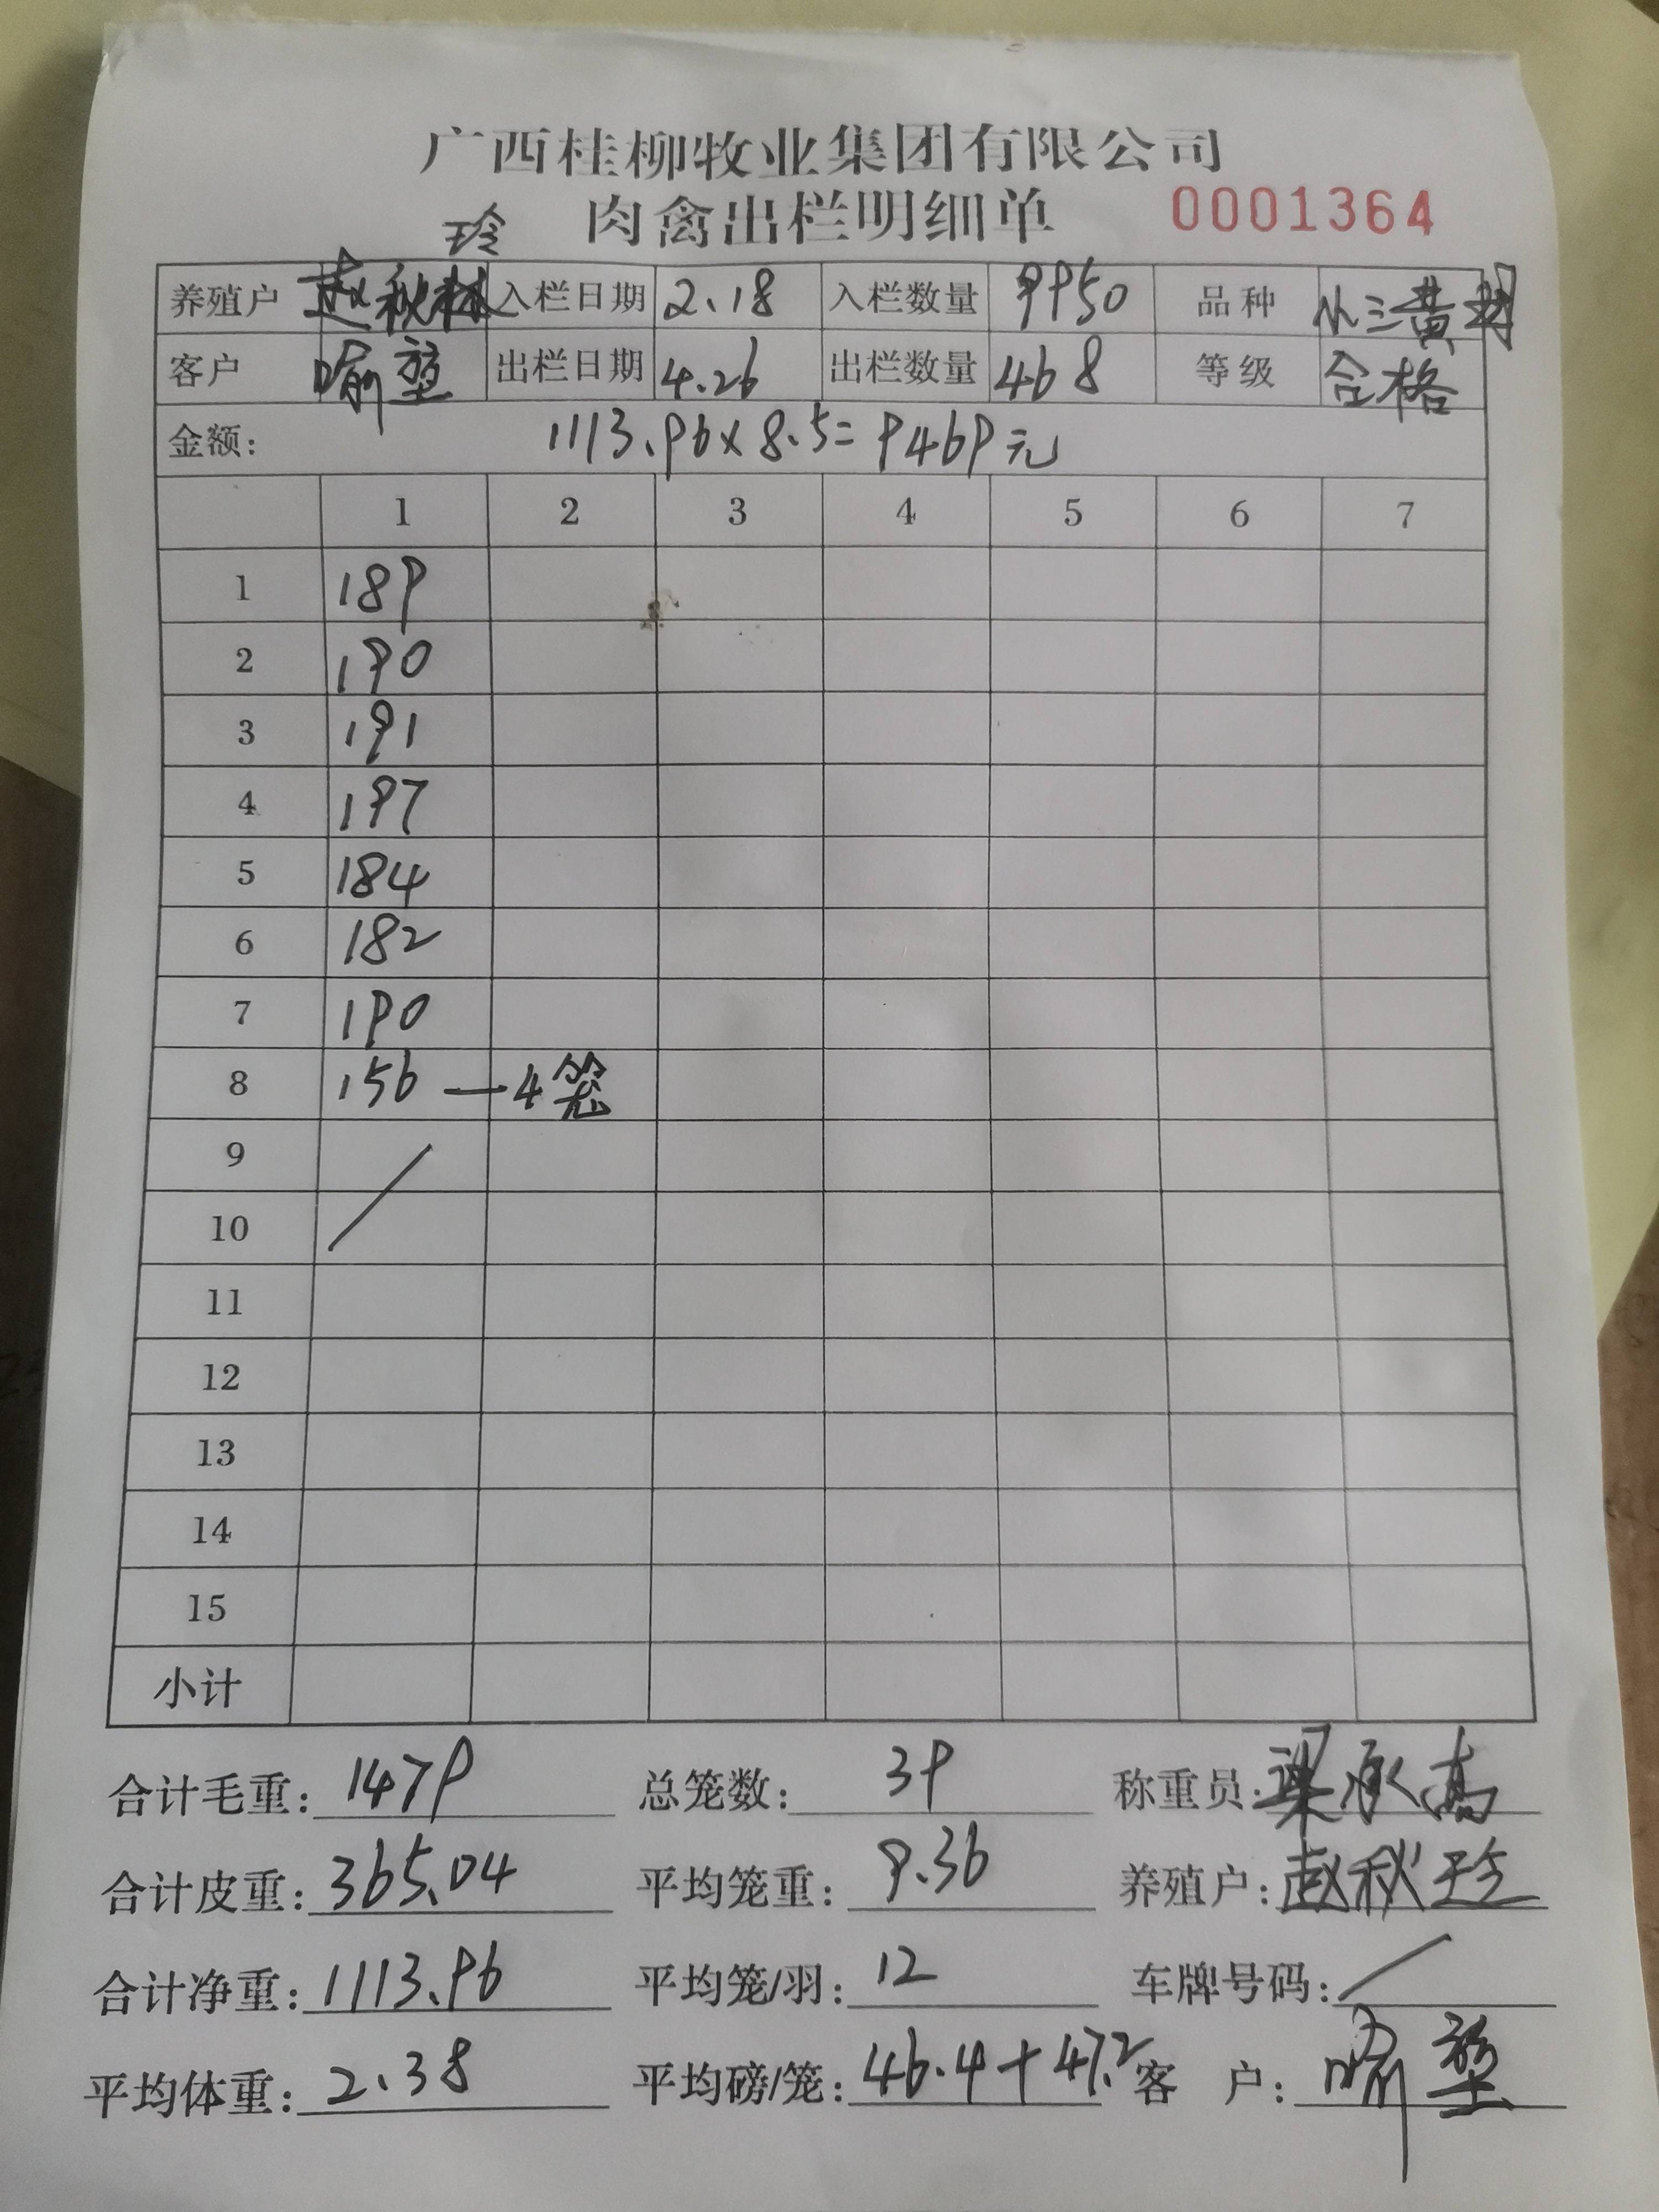 广西桂柳牧业集团有限公司
肉禽出栏明细单 0001364
玲
养殖户 赵秋林 入栏日期 2.18 入栏数量 9950 品种 小三黄
客户 喻 出栏日期 4.26 出栏数量 468 等级 合格
金额: 1113.96×8.5=9469元
1 2 3 4 5 6 7
1 189
2 190
3 191
4 197
5 184
6 182
7 190
8 156 — 4笼
9
10
11
12
13
14
15
小计
合计毛重: 1479 总笼数: 39 称重员: 梁承高
合计皮重: 365.04 平均笼重: 9.36 养殖户: 赵秋玲
合计净重: 1113.96 平均笼/羽: 12 车牌号码: /
平均体重: 2.38 平均磅/笼: 46.4+47.2 客户: 喻